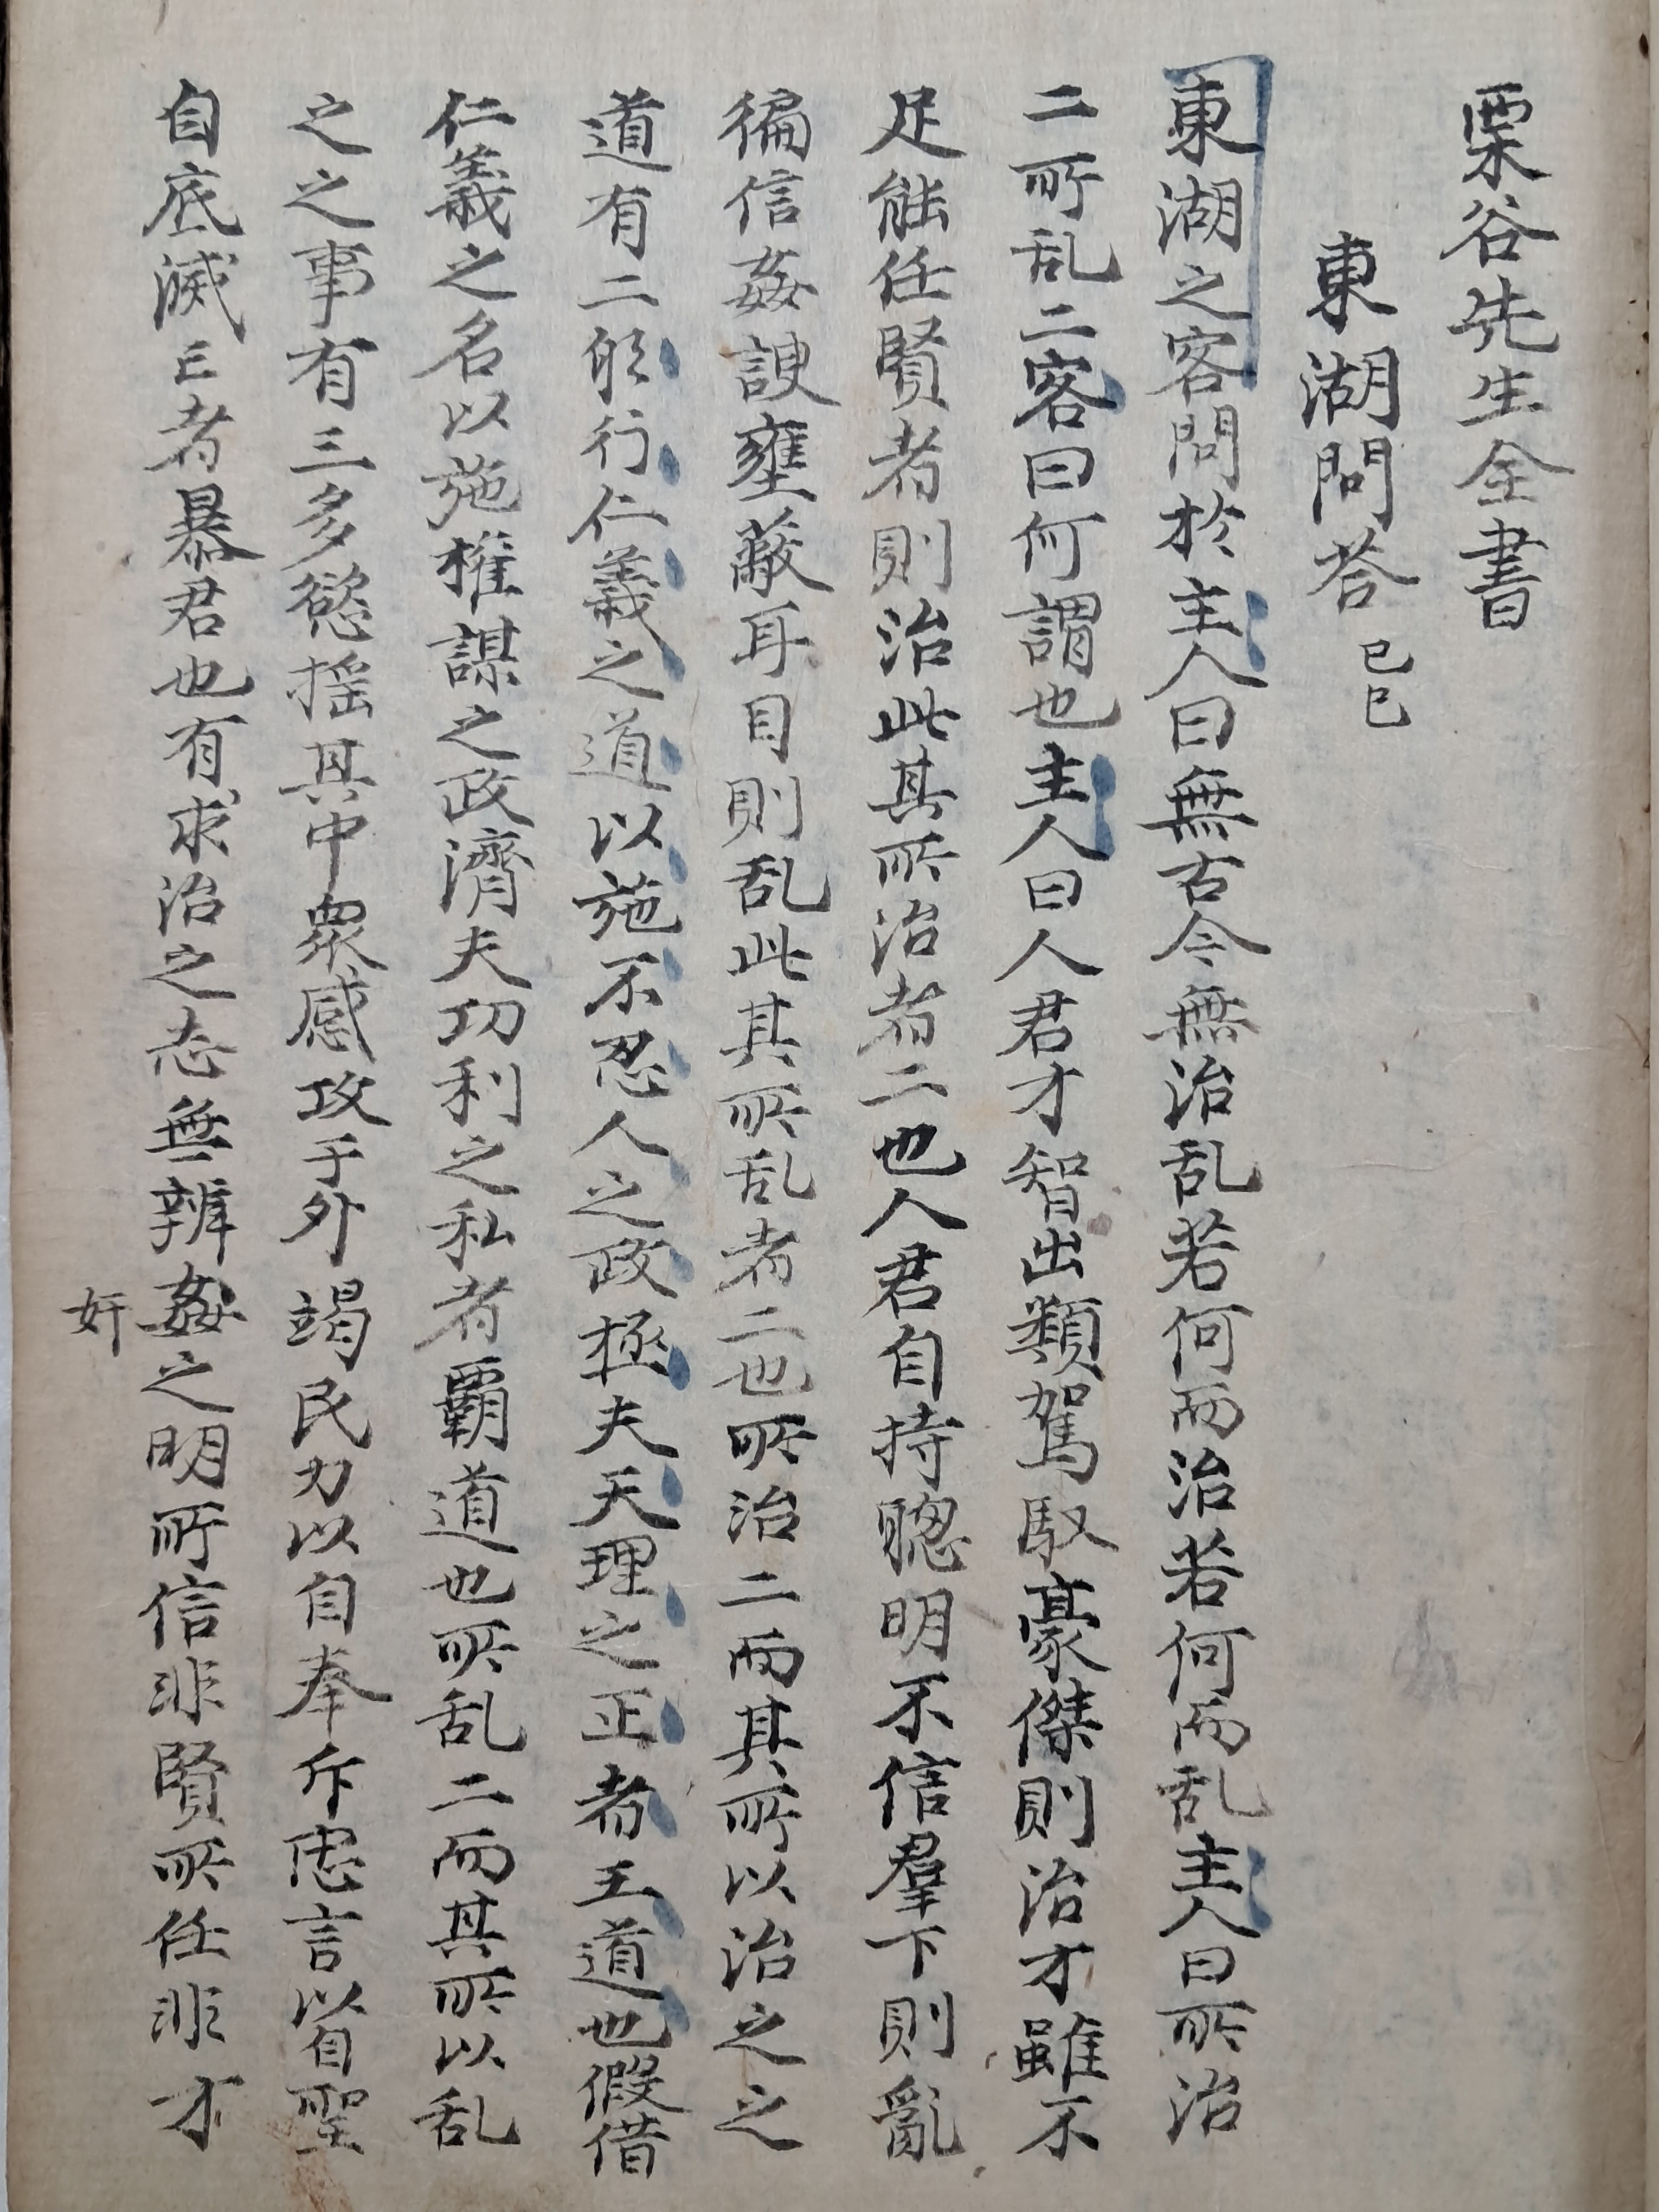 栗谷先生全書
東湖問荅 己巳
東湖之客問於主人曰無古今無治乱若何而治若何而乱主人曰所治
二所乱二客曰何謂也主人曰人君才智出類駕馭豪傑則治才雖不
足能任賢者則治此其所治者二也人君自持聰明不信羣下則亂
徧信姦諛壅蔽耳目則乱此其所乱者二也所治二而其所以治之之
道有二躬行仁義之道以施不忍人之政極夫天理之正者王道也假借
仁義之名以施權謀之政濟夫功利之私者覇道也所乱二而其所以乱
之之事有三多慾揺其中衆感攻于外竭民力以自奉斥忠言以自聖
自底滅亡者暴君也有求治之志無辨姦之明所信非賢所任非才
奸